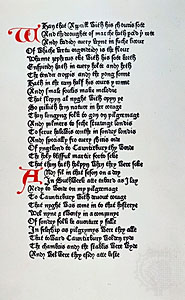 Whan that Apryll with his shouris sote
And the droughte of marche hath percid ye rote
And badid euery veyne in suche licour
Of whiche vertu engendrid is the flour
Whanne zepherus eke with his sote breth
Enspyrid hath in euery holte and heth
The tendir croppis and the yong sonne
Hath in the ram half his cours y ronne
And smale foulis make melodie
That slepyn al nyght with opyn ye
So prikith hem nature in her corage
Than longyng folk to gon on pilgremage
And palmers to seche straunge londis
To serue halowis couthe in sondry londis
And specially fro euery shiris ende
Of yngelond to Cauntirbury thy wende
The holy blisful martir forto seke
That them hath holpyn whan they were seke
And fil in that seson on a day
In Suthwerk atte tabard as I lay
Redy to wende on my pilgremage
To Cauntirbury with deuout corage
That nyght was come in to that hosterye
Wel nyne & twenty in a companye
Of sondry folk be auenture y falle
In feleship as pilgrymys were they alle
That toward Cauntirbury wolden ryde
The chambris and the stablis were wyde
And wel were they esid atte beste